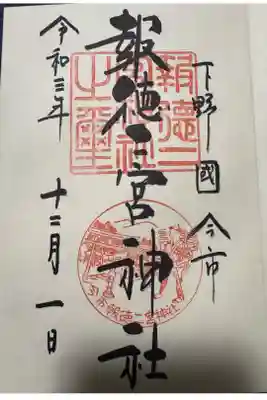 下野國 今市
報徳二宮神社
令和三年 十二月 一日
報徳二宮神社之璽